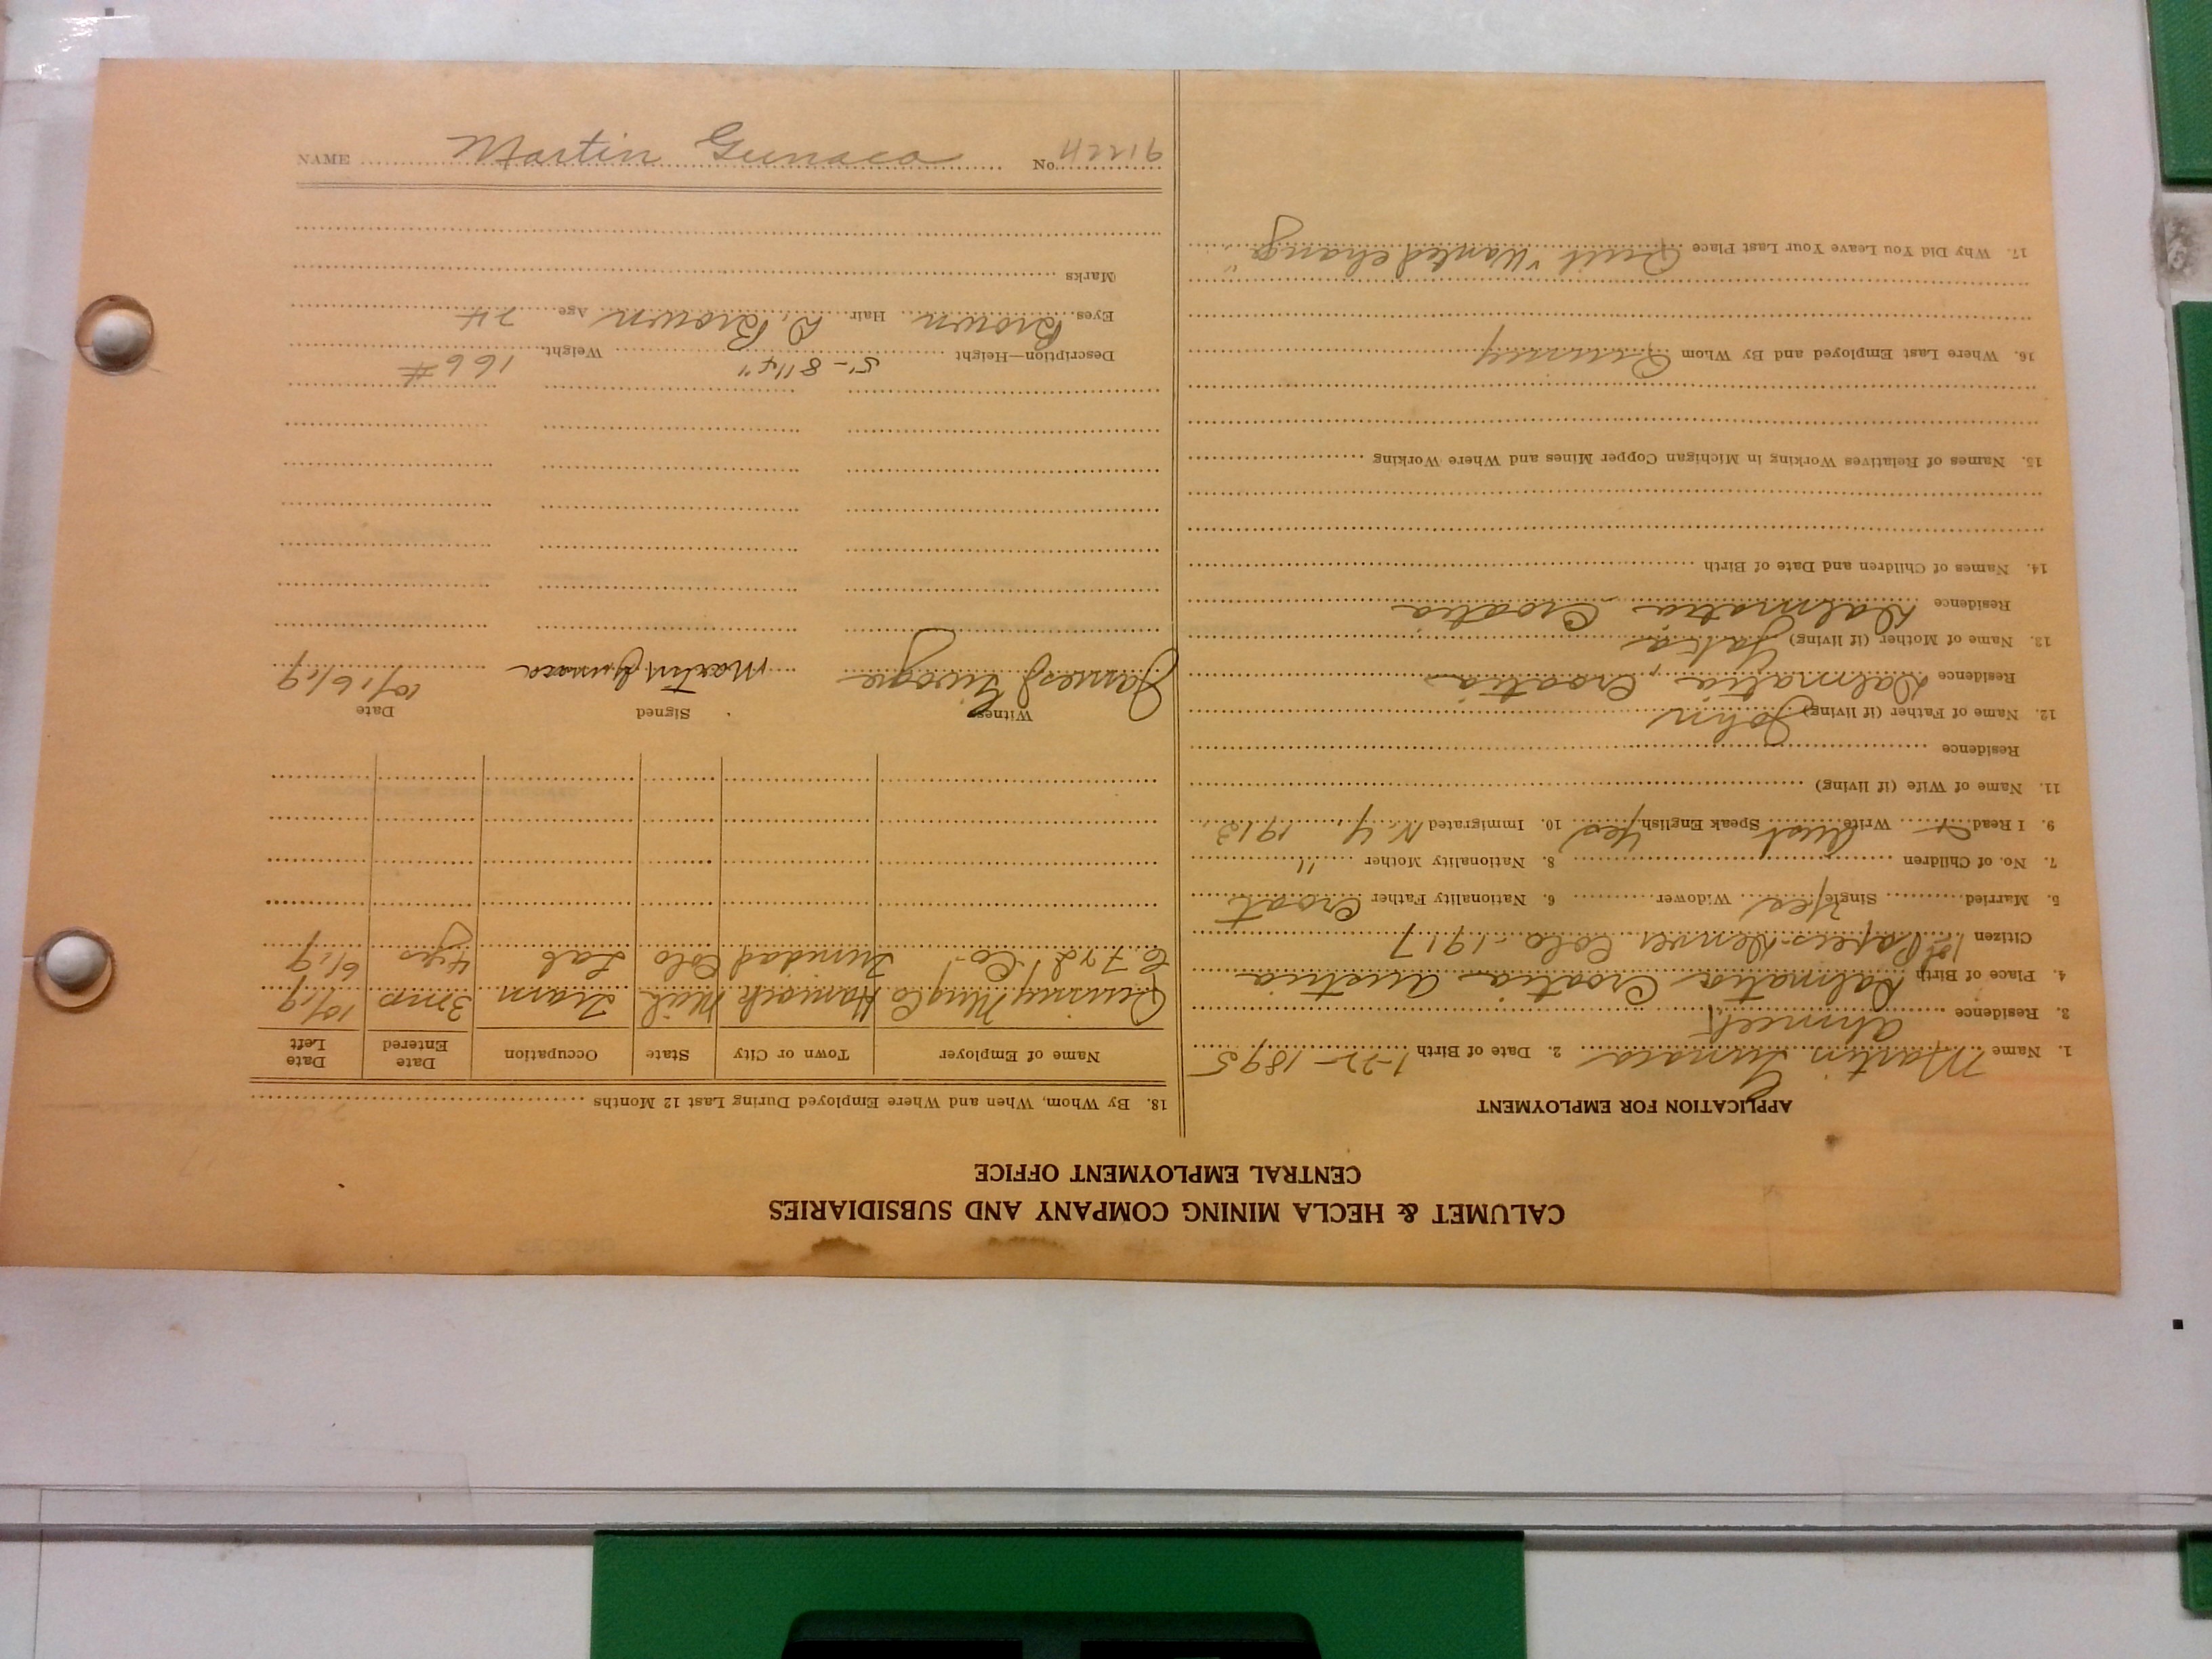 CALUMET & HECLA MINING COMPANY AND SUBSIDIARIES
CENTRAL EMPLOYMENT OFFICE
APPLICATION FOR EMPLOYMENT
1. Name Martin Gunaca 2. Date of Birth 1-22-1895
3. Residence Ahmeek
4. Place of Birth Dalmatia Croatia Austria
Citizen 1st Papers Denver Colo - 1917
5. Married Single Yes Widower 6. Nationality Father Croat
7. No. of Children 8. Nationality Mother "
9. I Read Write Aust Speak English Yes 10. Immigrated N.Y. 1913
11. Name of Wife (if living)
Residence
12. Name of Father (if living) John
Residence Dalmatia, Croatia
13. Name of Mother (if living)
Residence Dalmatia Croatia
14. Names of Children and Date of Birth
15. Names of Relatives Working in Michigan Copper Mines and Where Working
16. Where Last Employed and By Whom Quincy
17. Why Did You Leave Your Last Place Quit "Wanted change"
18. By Whom, When and Where Employed During Last 12 Months
Name of Employer Town or City State Occupation Date Entered Date Left
Quincy Mng Co Hancock Mich Tram 3 mo 10/19
C. F. & I. Co. Trinidad Colo Colo Lab 4 yrs 6/19
Witness Signed Date
James J Martin Gunaca 10/16/19
Description—Height 5'-8 1/4" Weight 166 #
Eyes Brown Hair D. Brown Age 24
Marks
NAME Martin Gunaca No. 42216